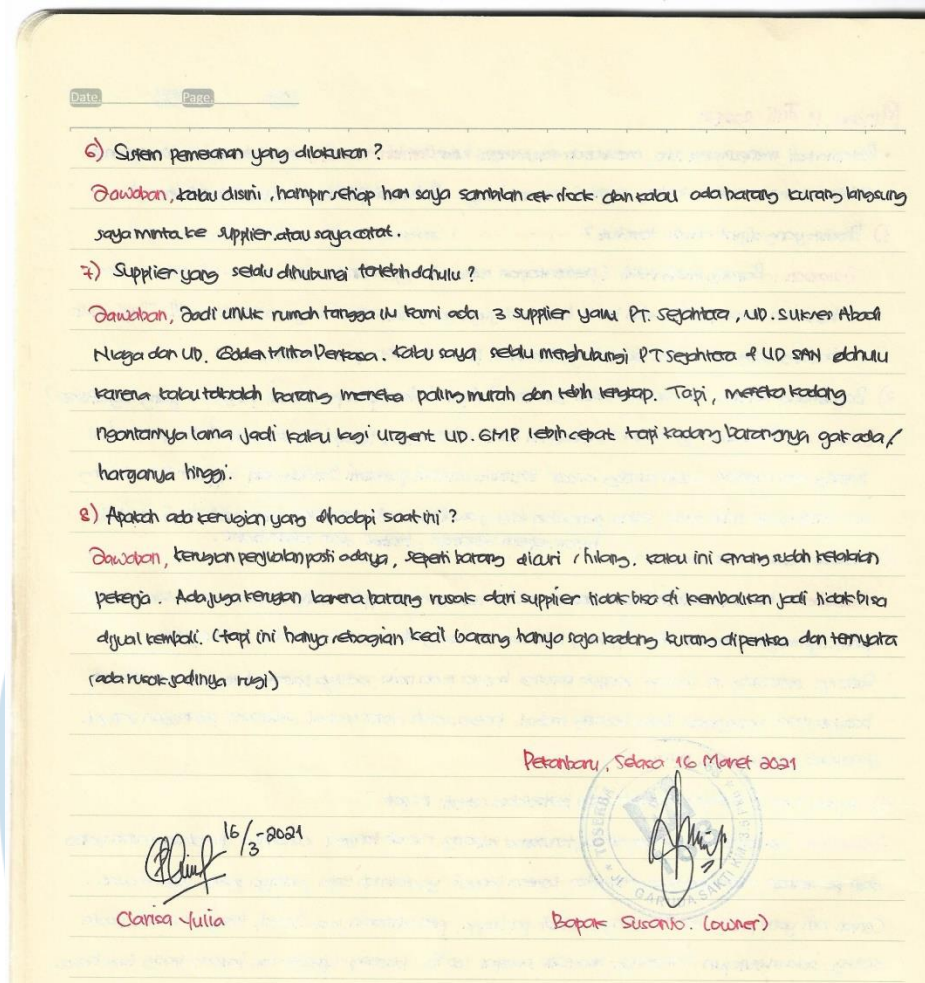 Date Page
6) Sistem pemesanan yang dilakukan ?
Jawaban, kalau disini, hampir setiap hari saya sambilan cek stock dan kalau ada barang kurang langsung
saya minta ke supplier atau saya catat.
7) Supplier yang selalu dihubungi terlebih dahulu ?
Jawaban, Jadi untuk rumah tangga ini kami ada 3 supplier yaitu PT. Sejahtera, UD. Sukses Abadi
Niaga dan UD. Golden Mitra Perkasa. Kalau saya selalu menghubungi PT Sejahtera & UD SAN dahulu
karena kalau barang mereka paling murah dan lebih lengkap. Tapi, mereka kadang
ngantarnya lama jadi kalau lagi urgent UD. GMP lebih cepat tapi kadang barangnya gak ada /
harganya tinggi.
8) Apakah ada kerugian yang dihadapi saat ini ?
Jawaban, kerugian penjualan pasti adanya, seperti barang dicuri / hilang. kalau ini emang sudah kelalaian
pekerja. Ada juga kerugian karena barang rusak dari supplier tidak bisa di kembalikan jadi tidak bisa
dijual kembali. (tapi ini hanya sebagian kecil barang hanya saja kadang kurang diperiksa dan ternyata
ada rusak jadinya rugi)
Pekanbaru, Selasa 16 Maret 2021
16/3-2021
TOSERBA
JL GARUDA SAKTI KM
Clarisa Yulia
Bapak Susanto. (owner)